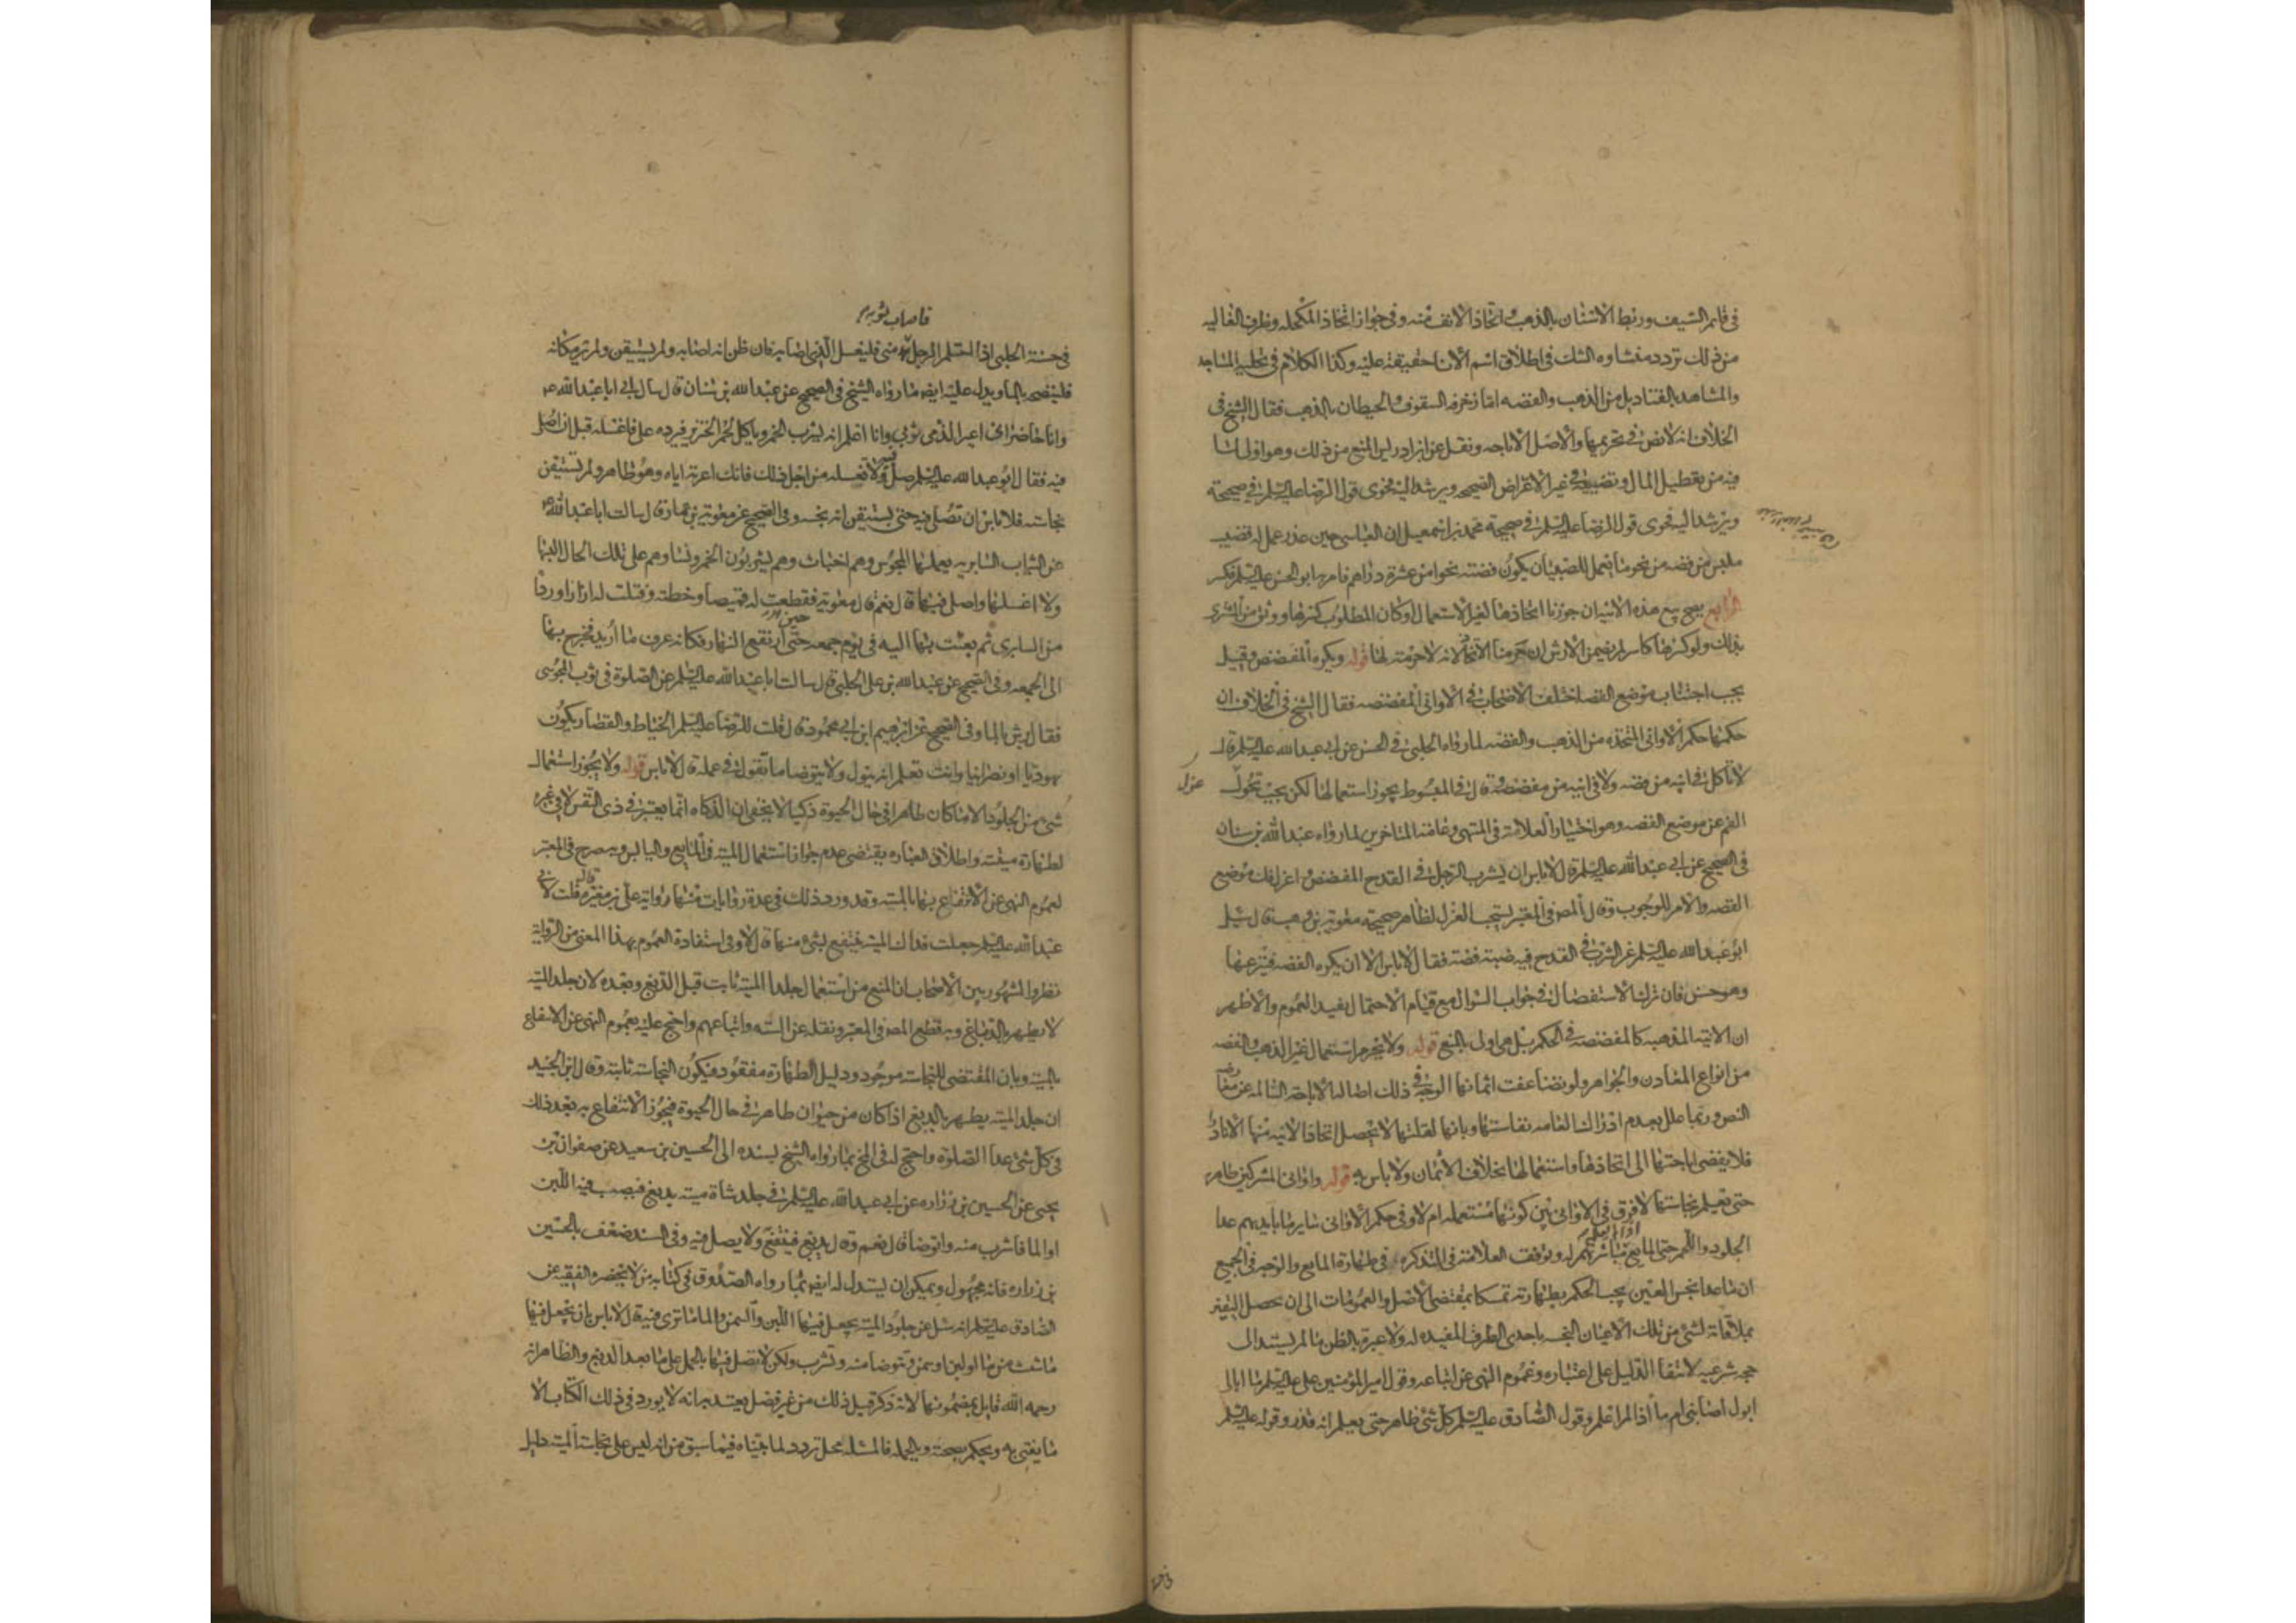 في قايم السيف وربط الاسنان بالذهب واتخاذ الانف منه وفي جواز اتخاذ المكحله وظرف الغاليه
من ذلك تردد منشاوه الشك في اطلاق اسم الانا حقيقة عليه وكذا الكلام في تحلية المساجد
والمشاهد بالقناديل من الذهب والفضه اما زخرفه السقوف والحيطان بالذهب فقال الشيخ في
الخلاف انه لا نص في تحريمها والاصل الاباحه ونقل عن ابن ادريس المنع من ذلك وهو اولى لما
فيه من تعطيل المال وتضييعه في غير الاغراض الصحيحه ويرشد اليه فحوى قول الرضا عليه السلم في صحيحة
ويرشد اليه فحوى قول الرضا عليه السلم في صحيحة محمد بن اسمعيل ان العباس حين عذر عمل له قضيب
ملبس من فضه من نحو ما يعمل للصبيان يكون فضته نحوا من عشرة دراهم فامر به ابو الحسن عليه السلم فكسر
الرابع يصح بيع هذه الانيه ان جوزنا اتخاذها لغير الاستعمال او كان المطلوب كسرها ووثق من المشتري
بذلك ولو كسرها كاسر لم يضمن الارش ان حرمنا الاتخاذ لانه لا حرمة لها قوله ويكره المفضض وقيل
يجب اجتناب موضع الفضه اختلف الاصحاب في الاواني المفضضه فقال الشيخ في الخلاف ان
حكمها حكم الاواني المتخذه من الذهب والفضه لما رواه الحلبي في الحسن عن ابي عبد الله عليه السلم قال
لا تاكل في انيه من فضه ولا في انيه من مفضضه وقال في المبسوط يجوز استعمالها لكن يجب تحول
عزل
الفم عن موضع الفضه وهو اختيار العلامه في المنتهى وعامة المتاخرين لما رواه عبد الله بن سنان
في الصحيح عن ابي عبد الله عليه السلم قال لا باس ان يشرب الرجل في القدح المفضض واعزل فمك عن موضع
الفضه والامر للوجوب وقال المص في المعتبر يستحب العزل لظاهر صحيحة معوية بن وهب قال سئل
ابو عبد الله عليه السلم عن الشرب في القدح فيه ضبة فضة فقال لا باس الا ان يكره الفضه فينزعها
وهو حسن فان ترك الاستفصال في جواب السوال مع قيام الاحتمال يفيد العموم والاظهر
ان الانيه المذهبه كالمفضضه في الحكم بل هي اولى بالمنع قوله ولا يحرم استعمال غير الذهب والفضه
من انواع المعادن والجواهر ولو تضاعفت اثمانها الوجه في ذلك اصالة الاباحه السالمه عن معارضة
النص وربما علل بعدم ادراك العامه نفاستها وبانها لقلتها لا يحصل اتخاذ الانيه منها الا نادرا
فلا يفضي اباحتها الى اتخاذها واستعمالها بخلاف الاثمان ولا باس به قوله واواني المشركين طاهره
حتى تعلم نجاستها لا فرق في الاواني بين كونها مستعمله ام لا وفي حكم الاواني ساير ما بايديهم عدا
الجلود واللحم حتى المايع مباشرتهم له وتوقف العلامة في التذكره في طهارة المايع والوجه في الجميع
ان ما عدا نجس العين يجب الحكم بطهارته تمسكا بمقتضى الاصل والعمومات الى ان يحصل اليقين
بملاقاته لشئ من تلك الاعيان النجسه باحدى الطرق المفيده له ولا عبرة بالظن ما لم يستند الى
حجه شرعيه لانتفا الدليل على اعتباره وعموم النهي عن اتباعه وقول امير المؤمنين علي عليه السلم ما ابالي
ابول اصابني ام ما اذا لم اعلم وقول الصادق عليه السلم كل شئ طاهر حتى يعلم انه قذر وقوله عليه السلم
فاصاب ثوبه
في حسنة الحلبي اذا احتلم الرجل مني فليغسل الذي اصابه فان ظن انه اصابه ولم يستيقن ولم ير مكانه
فلينضحه بالما ويدل عليه ايضا ما رواه الشيخ في الصحيح عن عبد الله بن سنان قال سال ابي ابا عبد الله ع
وانا حاضر اني اعير الذمي ثوبي وانا اعلم انه يشرب الخمر وياكل لحم الخنزير فيرده علي فاغسله قبل ان اصلي
فيه فقال ابو عبد الله عليه السلم صل فيه ولا تغسله من اجل ذلك فانك اعرته اياه وهو طاهر ولم تستيقن
نجاسته فلا باس ان تصلي فيه حتى يستيقن انه نجسه وفي الصحيح عن معوية بن عمار قال سالت ابا عبد الله ع
عن الثياب السابريه يعملها المجوس وهم اخباث وهم يشربون الخمر ونساوهم على تلك الحال البسها
ولا اغسلها واصلي فيها قال نعم قال معوية فقطعت له قميصا وخطته وفتلت له ازارا وردا
من السابري ثم بعثت بها اليه في يوم جمعه حين ارتفع النهار فكانه عرف ما اريد فخرج بها
الى الجمعه وفي الصحيح عن عبيد الله بن علي الحلبي قال سالت ابا عبد الله عليه السلم عن الصلوة في ثوب المجوسي
فقال يرش بالما وفي الصحيح عن ابرهيم ابن ابي محمود قال قلت للرضا عليه السلم الخياط والقصار يكون
يهوديا او نصرانيا وانت تعلم انه يبول ولا يتوضا ما تقول في عمله قال لا باس قوله ولا يجوز استعمال
شئ من الجلود الا ما كان طاهرا في حال الحيوة ذكيا لا يخفى ان الذكاه انما يعتبر في ذي النفس لا في غيره
لطهارة ميتته واطلاق العباره يقتضي عدم جواز استعمال الميته في المايع واليابس وبه صرح في المعتبر
لعموم النهي عن الانتفاع بها بالميته وقد ورد ذلك في عدة روايات منها رواية علي بن مغيره قال قلت لابي
عبد الله عليه السلم جعلت فداك الميته ينتفع بشئ منها قال لا وفي استفادة العموم بهذا المعنى من الرواية
نظر والمشهور بين الاصحاب ان المنع من استعمال جلد الميته ثابت قبل الدبغ وبعده لان جلد الميته
لا يطهر بالدباغ وبه قطع المص في المعتبر ونقله عن السته واتباعهم واحتج عليه بعموم النهي عن الانتفاع
بالميته وبان المقتضي للنجاسة موجود ودليل الطهاره مفقود فيكون النجاسه ثابته وقال ابن الجنيد
ان جلد الميته يطهر بالدبغ اذا كان من حيوان طاهر في حال الحيوة فيجوز الانتفاع به بعد ذلك
في كل شئ عدا الصلوة واحتج له في المخ بما رواه الشيخ بسنده الى الحسين بن سعيد عن صفوان بن
يحيى عن الحسين بن زراره عن ابي عبد الله عليه السلم في جلد شاة ميته يدبغ فيصب فيه اللبن
او الما فاشرب منه واتوضا قال نعم وقال يدبغ فينتفع ولا يصلى فيه وفي السند ضعف بالحسين
بن زراره فانه مجهول ويمكن ان يستدل له ايضا بما رواه الصدوق في كتابه من لا يحضره الفقيه عن
الصادق عليه السلم انه سئل عن جلود الميته يجعل فيها اللبن والسمن والما ما ترى فيه قال لا باس بان يجعل فيها
ما شئت من ما او لبن او سمن وتتوضا منه وتشرب ولكن لا تصل فيها بالحمل على ما بعد الدبغ والظاهر انه
رحمه الله قايل بمضمونها لانه ذكر قبل ذلك من غير فصل يعتد به انه لا يورد في ذلك الكتاب الا
ما يفتي به ويحكم بصحته وبالجمله فالمسئله محل تردد لما بيناه فيما سبق من انه ليس على نجاسة الميته دليل